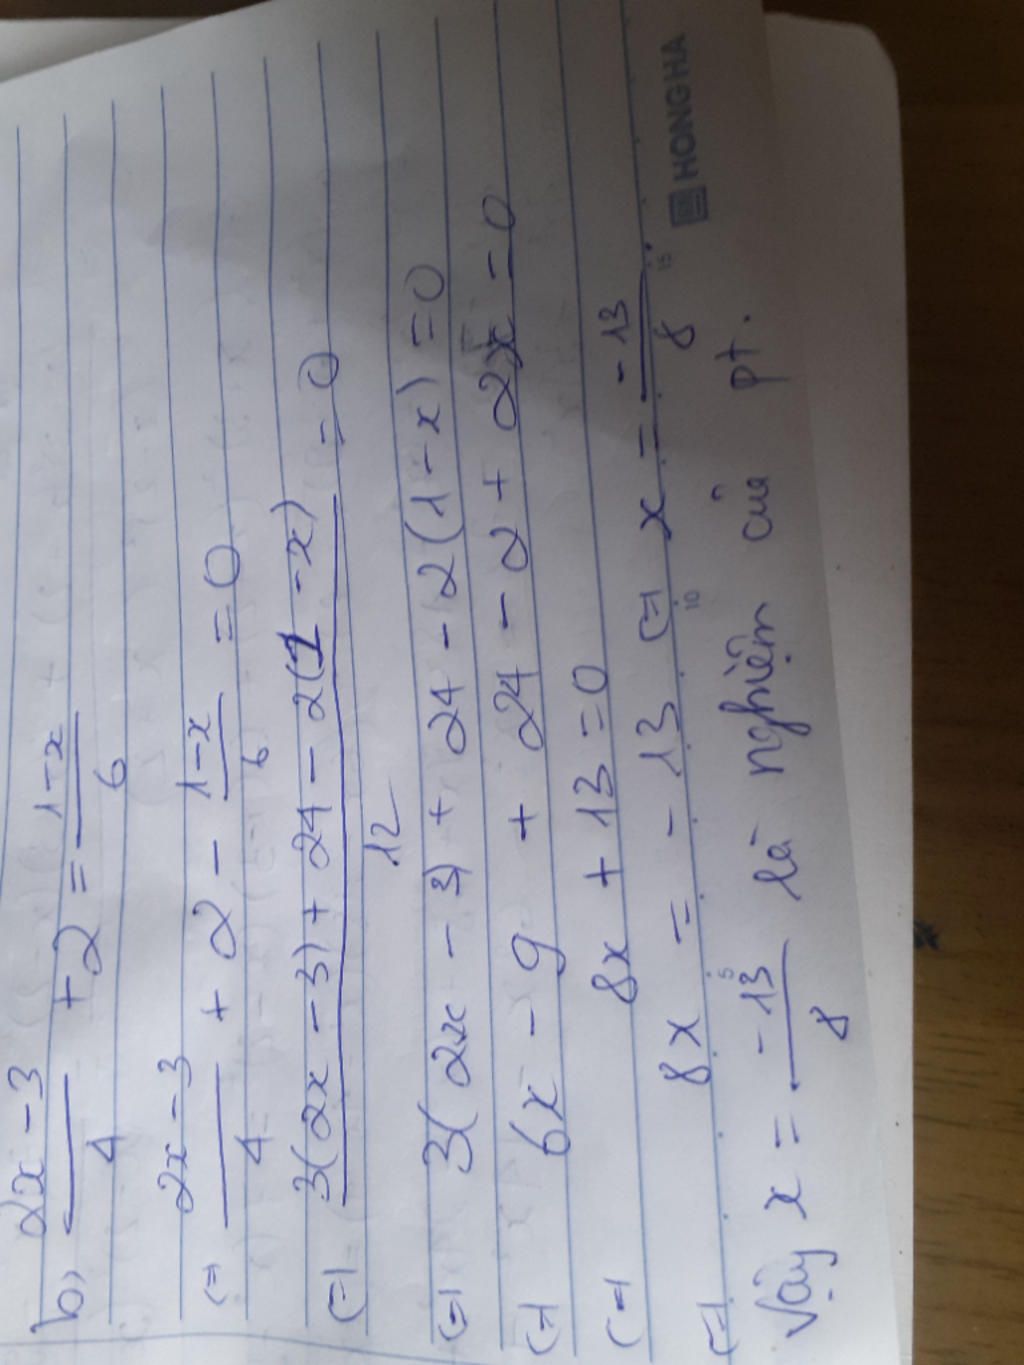 b) (2x - 3)/4 + 2 = (1-x)/6
(=) (2x - 3)/4 + 2 - (1-x)/6 = 0
(=) (3(2x - 3) + 24 - 2(1 - x))/12 = 0
(=) 3(2x - 3) + 24 - 2(1 - x) = 0
(=) 6x - 9 + 24 - 2 + 2x = 0
(=) 8x + 13 = 0
(=) 8x = - 13 (=) x = -13/8
5 10 15
HONG HA
Vậy x = -13/8 là nghiệm của pt.